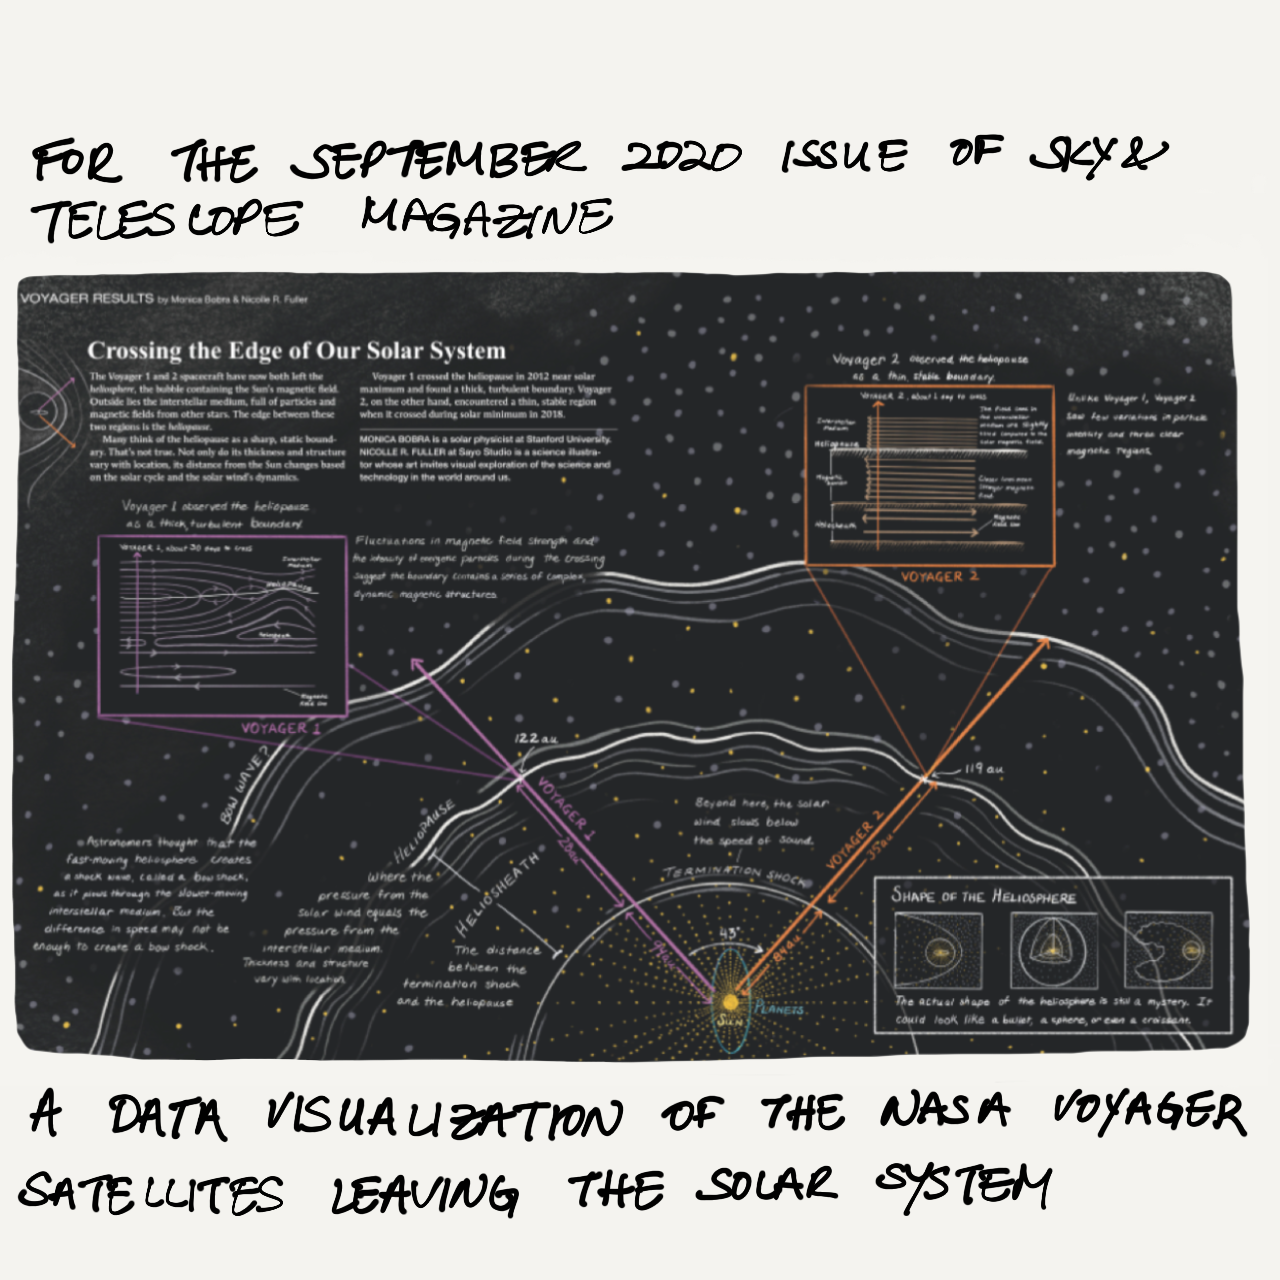 FOR THE SEPTEMBER 2020 ISSUE OF SKY &
TELESCOPE MAGAZINE
VOYAGER RESULTS by Monica Bobra & Nicolle R. Fuller
Crossing the Edge of Our Solar System
The Voyager 1 and 2 spacecraft have now both left the
heliosphere, the bubble containing the Sun's magnetic field.
Outside lies the interstellar medium, full of particles and
magnetic fields from other stars. The edge between these
two regions is the heliopause.
Many think of the heliopause as a sharp, static bound-
ary. That's not true. Not only do its thickness and structure
vary with location, its distance from the Sun changes based
on the solar cycle and the solar wind's dynamics.
Voyager 1 crossed the heliopause in 2012 near solar
maximum and found a thick, turbulent boundary. Voyager
2, on the other hand, encountered a thin, stable region
when it crossed during solar minimum in 2018.
MONICA BOBRA is a solar physicist at Stanford University.
NICOLLE R. FULLER at Sayo Studio is a science illustra-
tor whose art invites visual exploration of the science and
technology in the world around us.
Voyager 1 observed the heliopause
as a thick, turbulent boundary
VOYAGER 1, about 30 days to cross
Interstellar
Medium
Heliopause
Magnetic
field line
VOYAGER 1
Fluctuations in magnetic field strength and
the intensity of energetic particles during the crossing
suggest the boundary contains a series of complex,
dynamic magnetic structures
Voyager 2 observed the heliopause
as a thin, stable boundary.
VOYAGER 2, about 1 day to cross
Interstellar
Medium
Heliopause
Magnetic
barrier
Heliosheath
The field lines in
the interstellar
medium are slightly
tilted compared to the
solar magnetic field.
Closer lines mean
stronger magnetic
field
Magnetic
field line
VOYAGER 2
Unlike Voyager 1, Voyager 2
saw few variations in particle
intensity and three clear
magnetic regions
BOW WAVE?
Astronomers thought that the
fast-moving heliosphere creates
a shock wave, called a bow shock,
as it plows through the slower-moving
interstellar medium. But the
difference in speed may not be
enough to create a bow shock.
HELIOPAUSE
Where the
pressure from the
solar wind equals the
pressure from the
interstellar medium.
Thickness and structure
vary with location
HELIOSHEATH
The distance
between the
termination shock
and the heliopause
122 au
VOYAGER 1
28au
94au
Beyond here, the solar
wind slows below
the speed of sound.
TERMINATION SHOCK
43°
119 au
VOYAGER 2
35au
84au
SUN
PLANETS
SHAPE OF THE HELIOSPHERE
The actual shape of the heliosphere is still a mystery. It
could look like a bullet, a sphere, or even a croissant.
A DATA VISUALIZATION OF THE NASA VOYAGER
SATELLITES LEAVING THE SOLAR SYSTEM